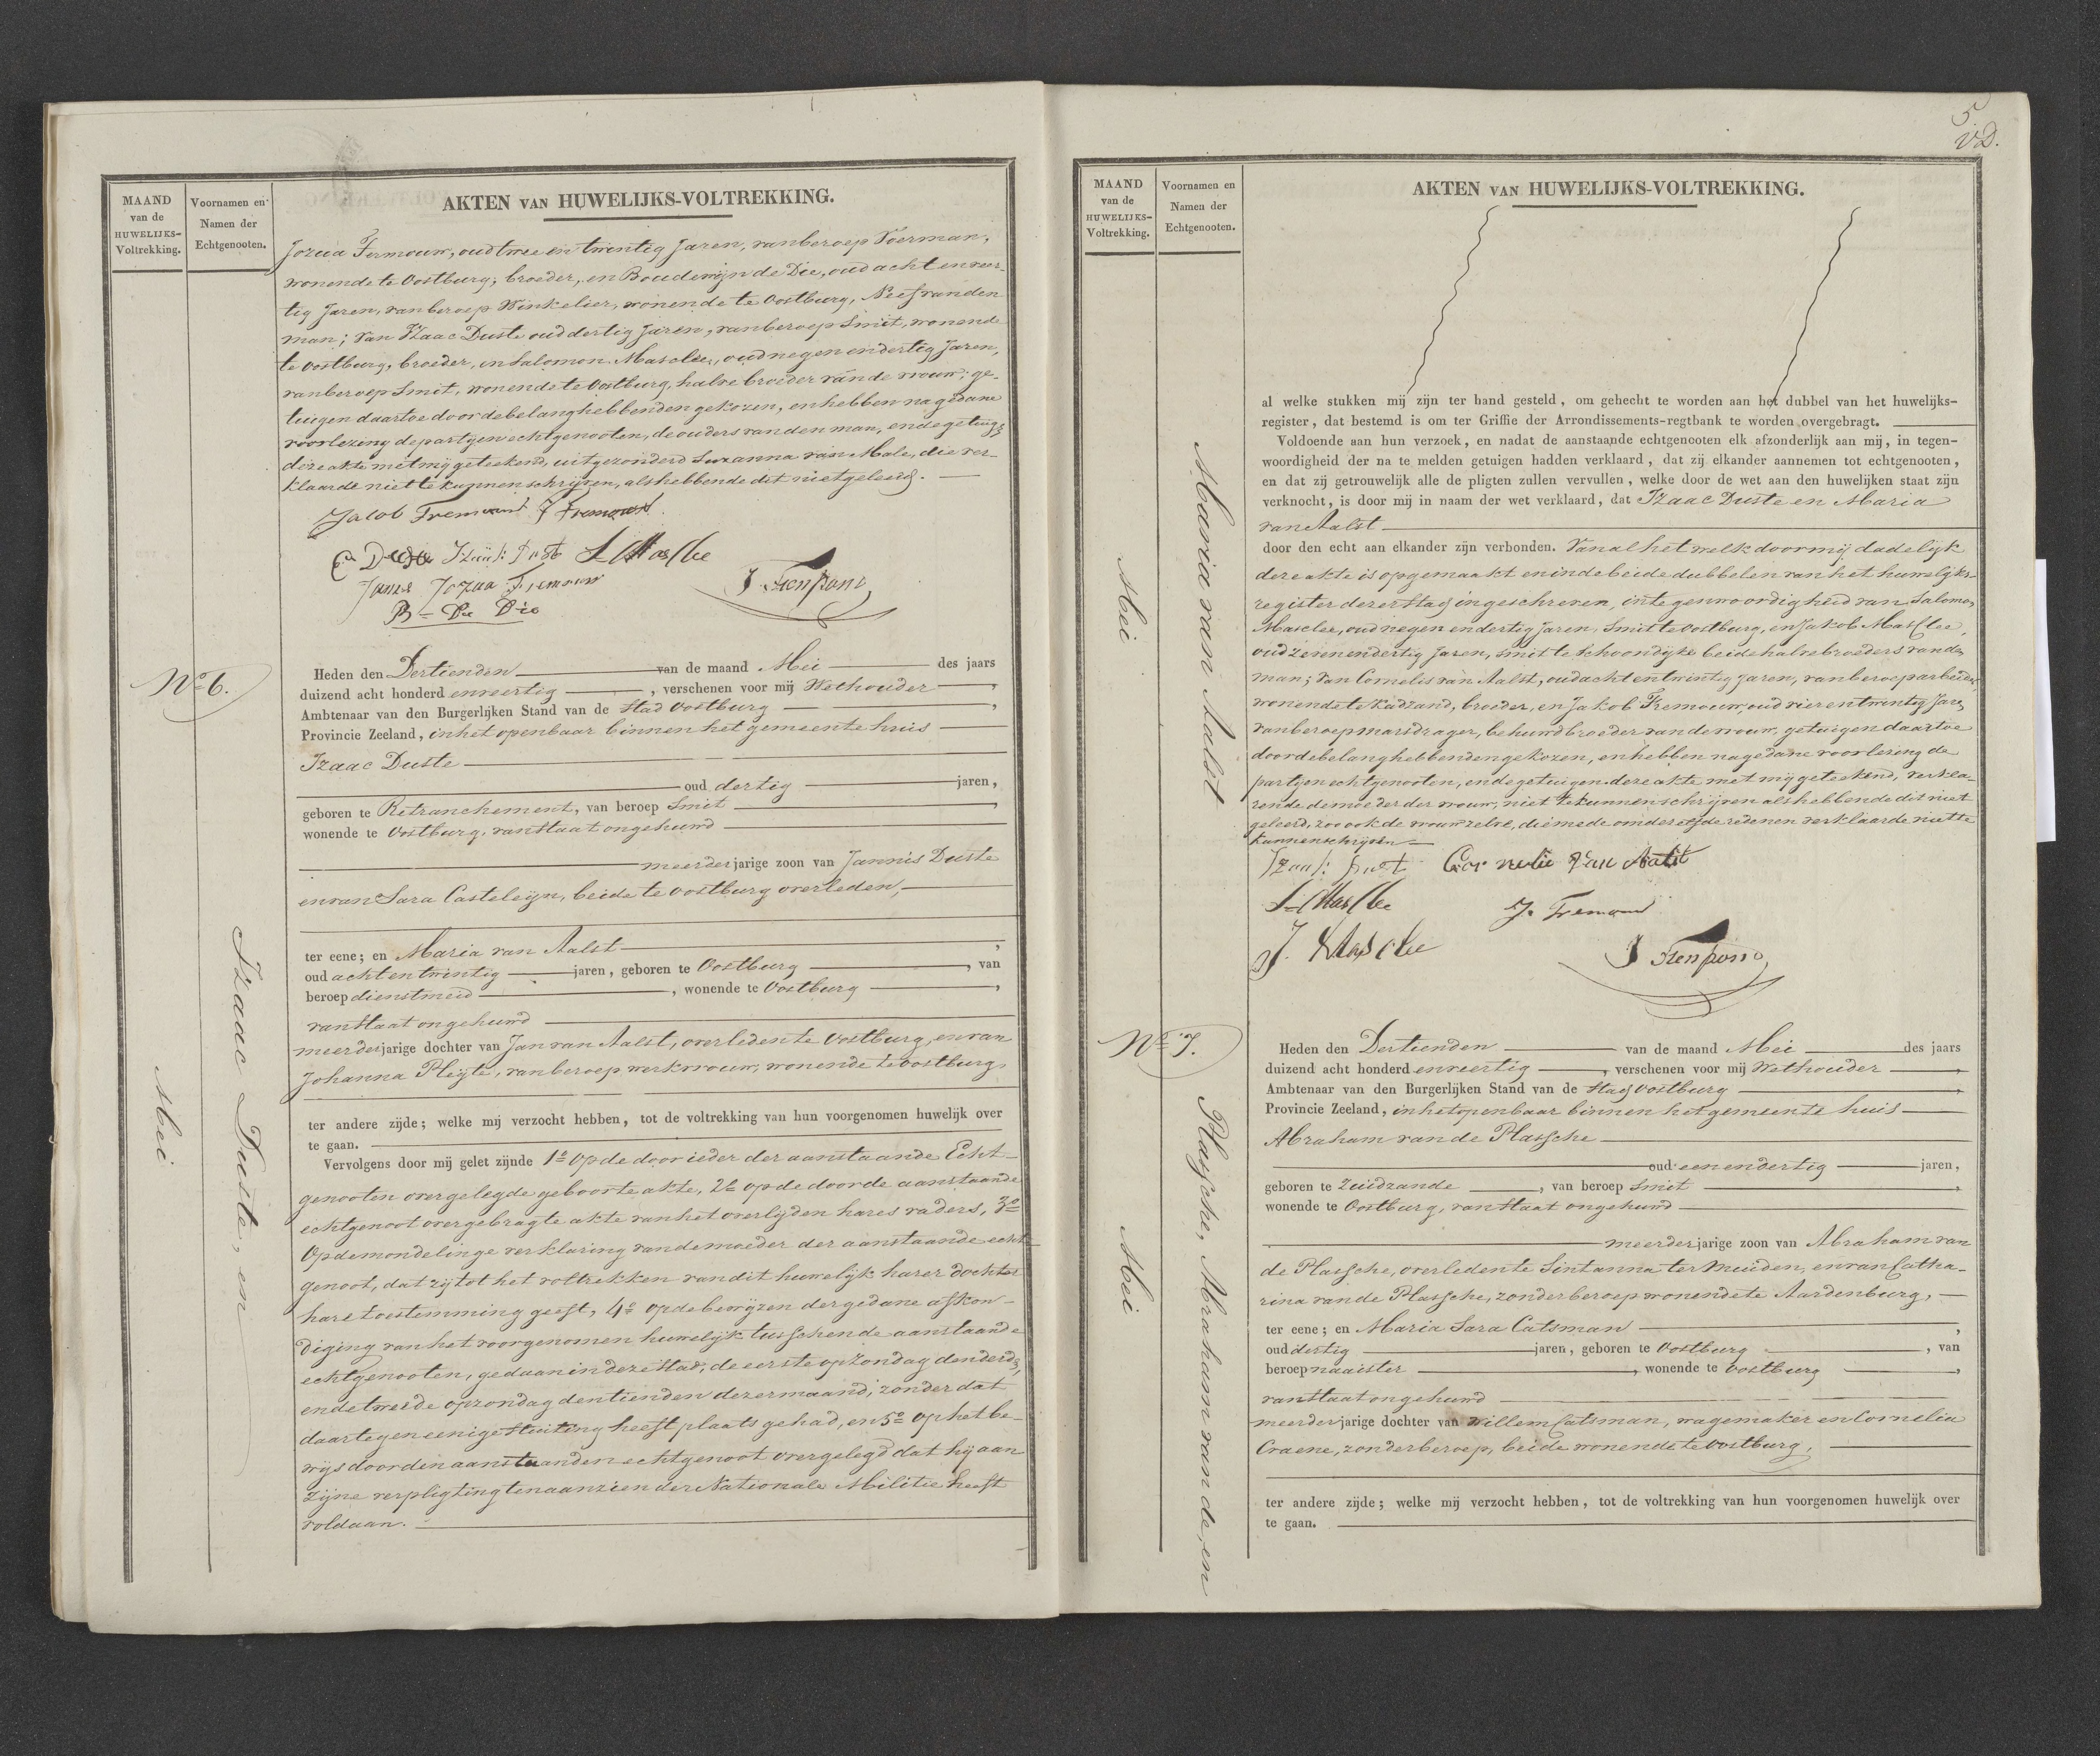 MAAND
van de
HUWELIJKS-
Voltrekking.
Voornamen en
Namen der
Echtgenooten.
AKTEN VAN HUWELIJKS-VOLTREKKING.
Jozua Fremouw, oud twee en twintig Jaren, van beroep Voerman,
wonende te Oostburg, broeder, en Boudewijn de Die, oud acht en veer-
tig Jaren, van beroep Winkelier, wonende te Oostburg, Neef van den
man; Van Izaac Duste oud dertig Jaren, van beroep Smit, wonende
te Oostburg, broeder, en Salomon Masclee, oud negen en dertig Jaren,
van beroep Smit, wonende te Oostburg, halve broeder van de vrouw; ge-
tuigen daartoe door de belanghebbenden gekozen, en hebben na gedane
voorlezing de partyen echtgenooten, de ouders van den man, en de getuigen
deze akte met my geteekend, uitgezonderd Suzanna van Male, die ver-
klaarde niet te kunnen schrijven, als hebbende dit niet geleerd.
Jacob Fremouw J Fremouw
Izaak Dust S Masclee
Jozua Fremouw
B= De Die
No 6.
Heden den Dertienden van de maand Mei des jaars
duizend acht honderd eenveertig , verschenen voor mij Wethouder ,
Ambtenaar van den Burgerlijken Stand van de Stad Oostburg ,
Provincie Zeeland, in het openbaar binnen het gemeente huis
Izaac Duste
oud dertig jaren,
geboren te Retranchement, van beroep Smit ,
wonende te Oostburg, van Staat ongehuwd
meerderjarige zoon van Jannis Duste
en van Sara Casteleyn, beide te Oostburg overleden,
ter eene; en Maria van Aalst ,
oud acht en twintig jaren, geboren te Oostburg , van
beroep dienstmeid , wonende te Oostburg ,
van Staat ongehuwd
meerderjarige dochter van Jan van Aalst, overleden te Oostburg, en van
Johanna Pleyte, van beroep werkvrouw, wonende te Oostburg,
ter andere zijde; welke mij verzocht hebben, tot de voltrekking van hun voorgenomen huwelijk over
te gaan.
Vervolgens door mij gelet zijnde 1o Op de door ieder der aanstaande Echt-
genooten overgelegde geboorte akte, 2o op de door de aanstaande
echtgenoot overgebragte akte van het overlijden hares vaders, 3o
Op de mondelinge verklaring van de moeder der aanstaande echt-
genoot, dat zij tot het voltrekken van dit huwelijk harer dochter
hare toestemming geeft, 4o op de bewijzen der gedane afkon-
diging van het voorgenomen huwelijk tusschen de aanstaande
echtgenooten, gedaan in deze Stad, de eerste op zondag den derden,
en de tweede op zondag den tienden dezer maand, zonder dat
daartegen eenige stuiting heeft plaats gehad, en 5o op het be-
wijs door den aanstaanden echtgenoot overgelegd dat hij aan
zijne verpligting ten aanzien der Nationale Militie heeft
voldaan.
Izaac Duste, en
Mei
5
VD.
MAAND
van de
HUWELIJKS-
Voltrekking.
Voornamen en
Namen der
Echtgenooten.
AKTEN VAN HUWELIJKS-VOLTREKKING.
al welke stukken mij zijn ter hand gesteld, om gehecht te worden aan het dubbel van het huwelijks-
register, dat bestemd is om ter Griffie der Arrondissements-regtbank te worden overgebragt.
Voldoende aan hun verzoek, en nadat de aanstaande echtgenooten elk afzonderlijk aan mij, in tegen-
woordigheid der na te melden getuigen hadden verklaard, dat zij elkander aannemen tot echtgenooten,
en dat zij getrouwelijk alle de pligten zullen vervullen, welke door de wet aan den huwelijken staat zijn
verknocht, is door mij in naam der wet verklaard, dat Izaac Duste en Maria
van Aalst
door den echt aan elkander zijn verbonden. Van al het welk door mij dadelijk
deze akte is opgemaakt en in de beide dubbelen van het huwelijks-
register dezer Stad ingeschreven, in tegenwoordigheid van Salomon
Masclee, oud negen en dertig jaren, Smit te Oostburg, en Jakob Masclee,
oud zeven en dertig jaren, smit te Schoondijke beide halve broeders van den
man; Van Cornelis van Aalst, oud acht en twintig jaren, van beroep arbeider,
wonende te Kadzand, broeder, en Jakob Fremouw, oud vier en twintig Jaren
van beroep marsdrager, behuwdbroeder van de vrouw, getuigen daartoe
door de belanghebbenden gekozen, en hebben na gedane voorlezing de
partyen echtgenooten, en de getuigen deze akte met mij geteekend, verkla-
rende de moeder der vrouw, niet te kunnen schrijven als hebbende dit niet
geleerd, zoo ook de vrouw zelve, die mede om dezelfde redenen verklaarde niet te
kunnen schrijven
Izaak Dust Cornelis van Aalst
S Masclee
J. Fremouw
J. Masclee
Maria van Aalst
Mei
No 7.
Heden den Dertienden van de maand Mei des jaars
duizend acht honderd eenveertig , verschenen voor mij Wethouder ,
Ambtenaar van den Burgerlijken Stand van de Stad Oostburg ,
Provincie Zeeland, in het openbaar binnen het gemeente huis
Abraham van de Plassche
oud een en dertig jaren,
geboren te Zuidzande , van beroep Smit ,
wonende te Oostburg, van Staat ongehuwd
meerderjarige zoon van Abraham van
de Plassche, overleden te Sint anna ter Muiden, en van Catha-
rina van de Plassche, zonder beroep wonende te Aardenburg,
ter eene; en Maria Sara Catsman ,
oud dertig jaren, geboren te Oostburg , van
beroep naaister , wonende te Oostburg ,
van Staat ongehuwd
meerderjarige dochter van Willem Catsman, wagemaker en Cornelia
Craene, zonder beroep, beide wonende te Oostburg,
ter andere zijde; welke mij verzocht hebben, tot de voltrekking van hun voorgenomen huwelijk over
te gaan.
Plassche, Abraham van de, en
Mei